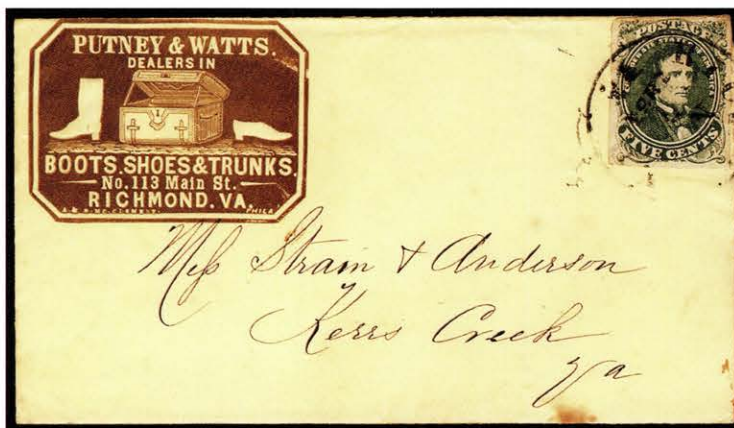 PUTNEY & WATTS.
DEALERS IN
BOOTS. SHOES & TRUNKS.
No. 113 Main St.
RICHMOND. VA.
PHILA
POSTAGE
FIVE CENTS
Mess Strain & Anderson
Kerrs Creek
Va